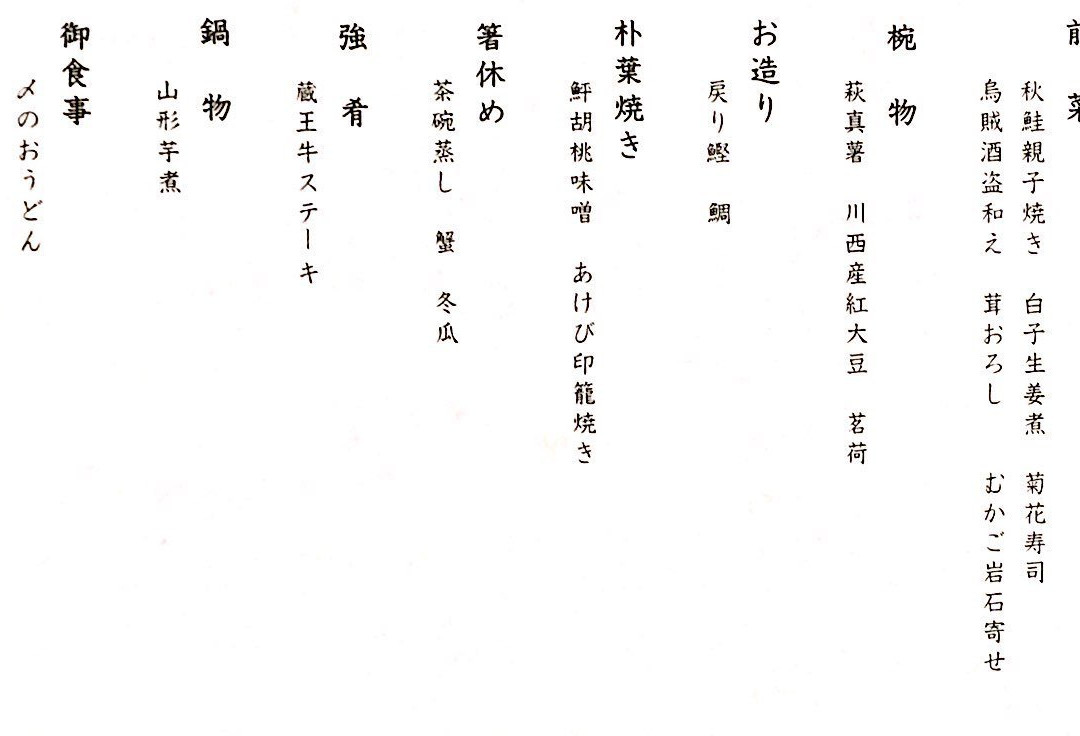 前菜
秋鮭親子焼き　白子生姜煮　菊花寿司
烏賊酒盗和え　茸おろし　むかご岩石寄せ
椀物
萩真薯　川西産紅大豆　茗荷
お造り
戻り鰹　鯛
朴葉焼き
鮃胡桃味噌　あけび印籠焼き
箸休め
茶碗蒸し　蟹　冬瓜
強肴
蔵王牛ステーキ
鍋物
山形芋煮
御食事
〆のおうどん